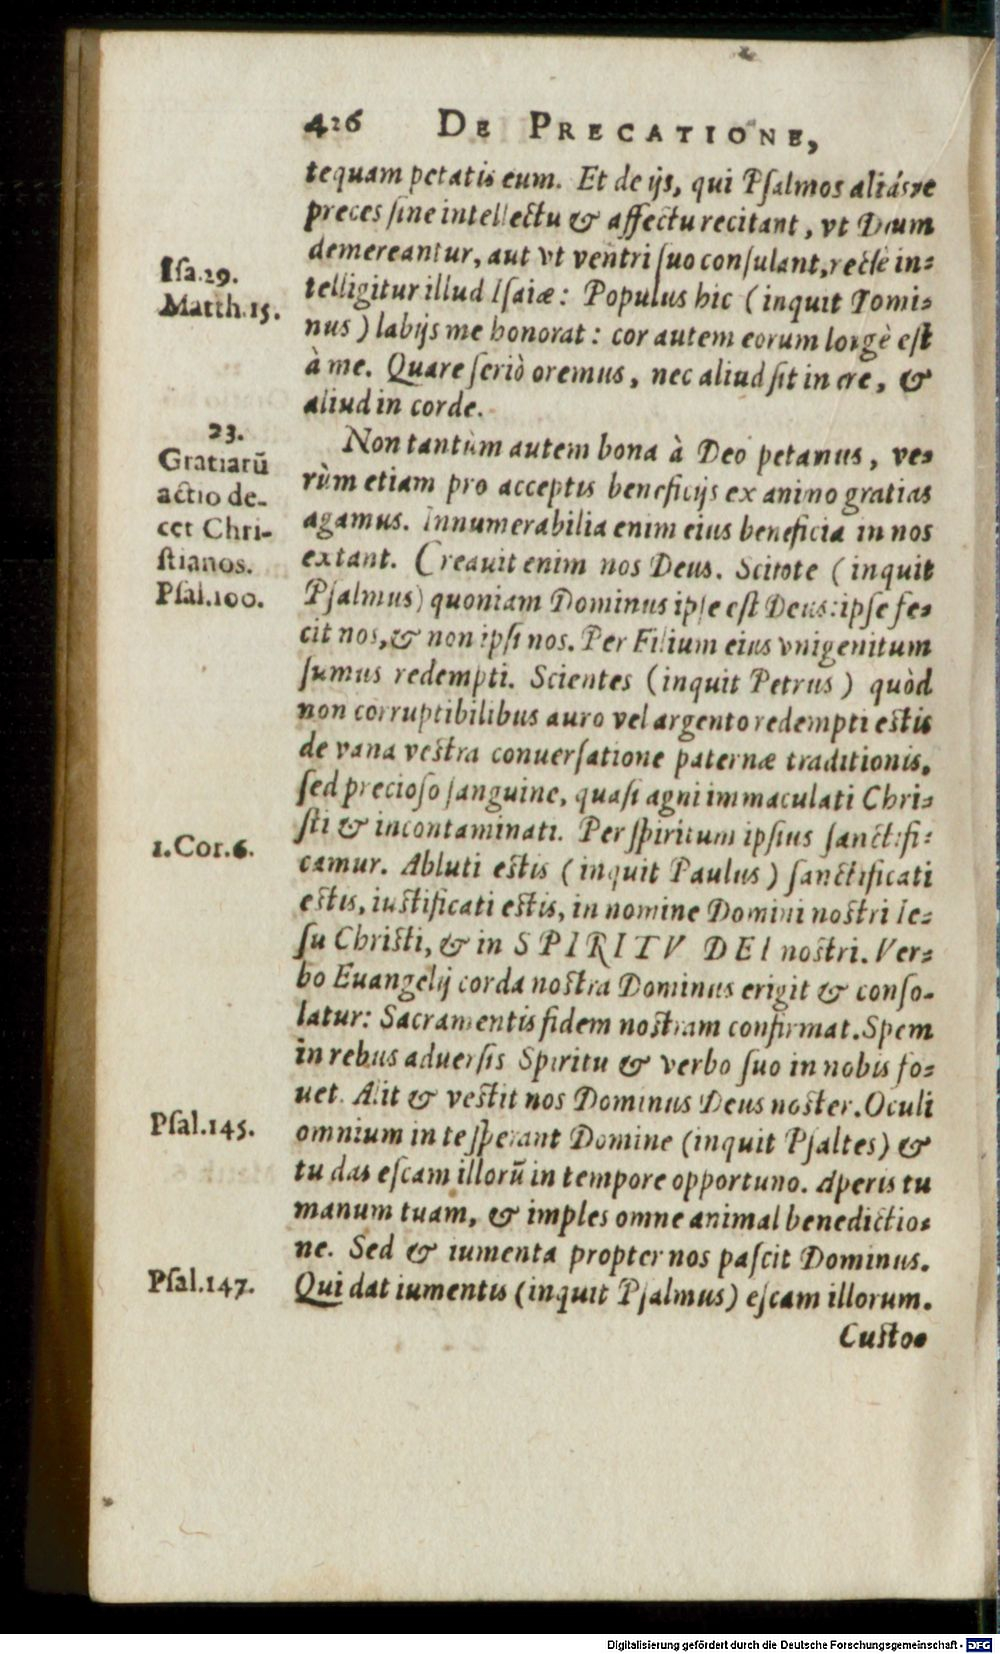 426 DE PRECATIONE,
tequam petatis eum. Et de ijs, qui Pſalmos aliásve
preces ſine intellectu & affectu recitant, vt Deum
demereantur, aut vt ventri ſuo conſulant, rectè in-
Iſa.29.
telligitur illud Iſaiæ: Populus hic (inquit Domi-
Matth.15.
nus) labijs me honorat: cor autem eorum longè eſt
à me. Quare ſeriò oremus, nec aliud ſit in ore, &
aliud in corde.
23.
Gratiarũ
actio de-
cet Chri-
ſtianos.
Pſal.100.
Non tantùm autem bona à Deo petamus, ve-
rùm etiam pro acceptis beneficijs ex animo gratias
agamus. Innumerabilia enim eius beneficia in nos
extant. Creauit enim nos Deus. Scitote (inquit
Pſalmus) quoniam Dominus ipſe eſt Deus: ipſe fe-
cit nos, & non ipſi nos. Per Filium eius vnigenitum
ſumus redempti. Scientes (inquit Petrus) quòd
non corruptibilibus auro vel argento redempti eſtis
de vana veſtra conuerſatione paternæ traditionis,
ſed precioſo ſanguine, quaſi agni immaculati Chri-
ſti & incontaminati. Per ſpiritum ipſius ſanctifi-
1.Cor.6.
camur. Abluti eſtis (inquit Paulus) ſanctificati
eſtis, iuſtificati eſtis, in nomine Domini noſtri Ie-
ſu Chriſti, & in SPIRITV DEI noſtri. Ver-
bo Euangelij corda noſtra Dominus erigit & conſo-
latur: Sacramentis fidem noſtram confirmat. Spem
in rebus aduerſis Spiritu & verbo ſuo in nobis fo-
uet. Alit & veſtit nos Dominus Deus noſter. Oculi
Pſal.145.
omnium in te ſperant Domine (inquit Pſaltes) &
tu das eſcam illorũ in tempore opportuno. Aperis tu
manum tuam, & imples omne animal benedictio-
ne. Sed & iumenta propter nos paſcit Dominus.
Pſal.147.
Qui dat iumentis (inquit Pſalmus) eſcam illorum.
Cuſto-
Digitalisierung gefördert durch die Deutsche Forschungsgemeinschaft - DFG